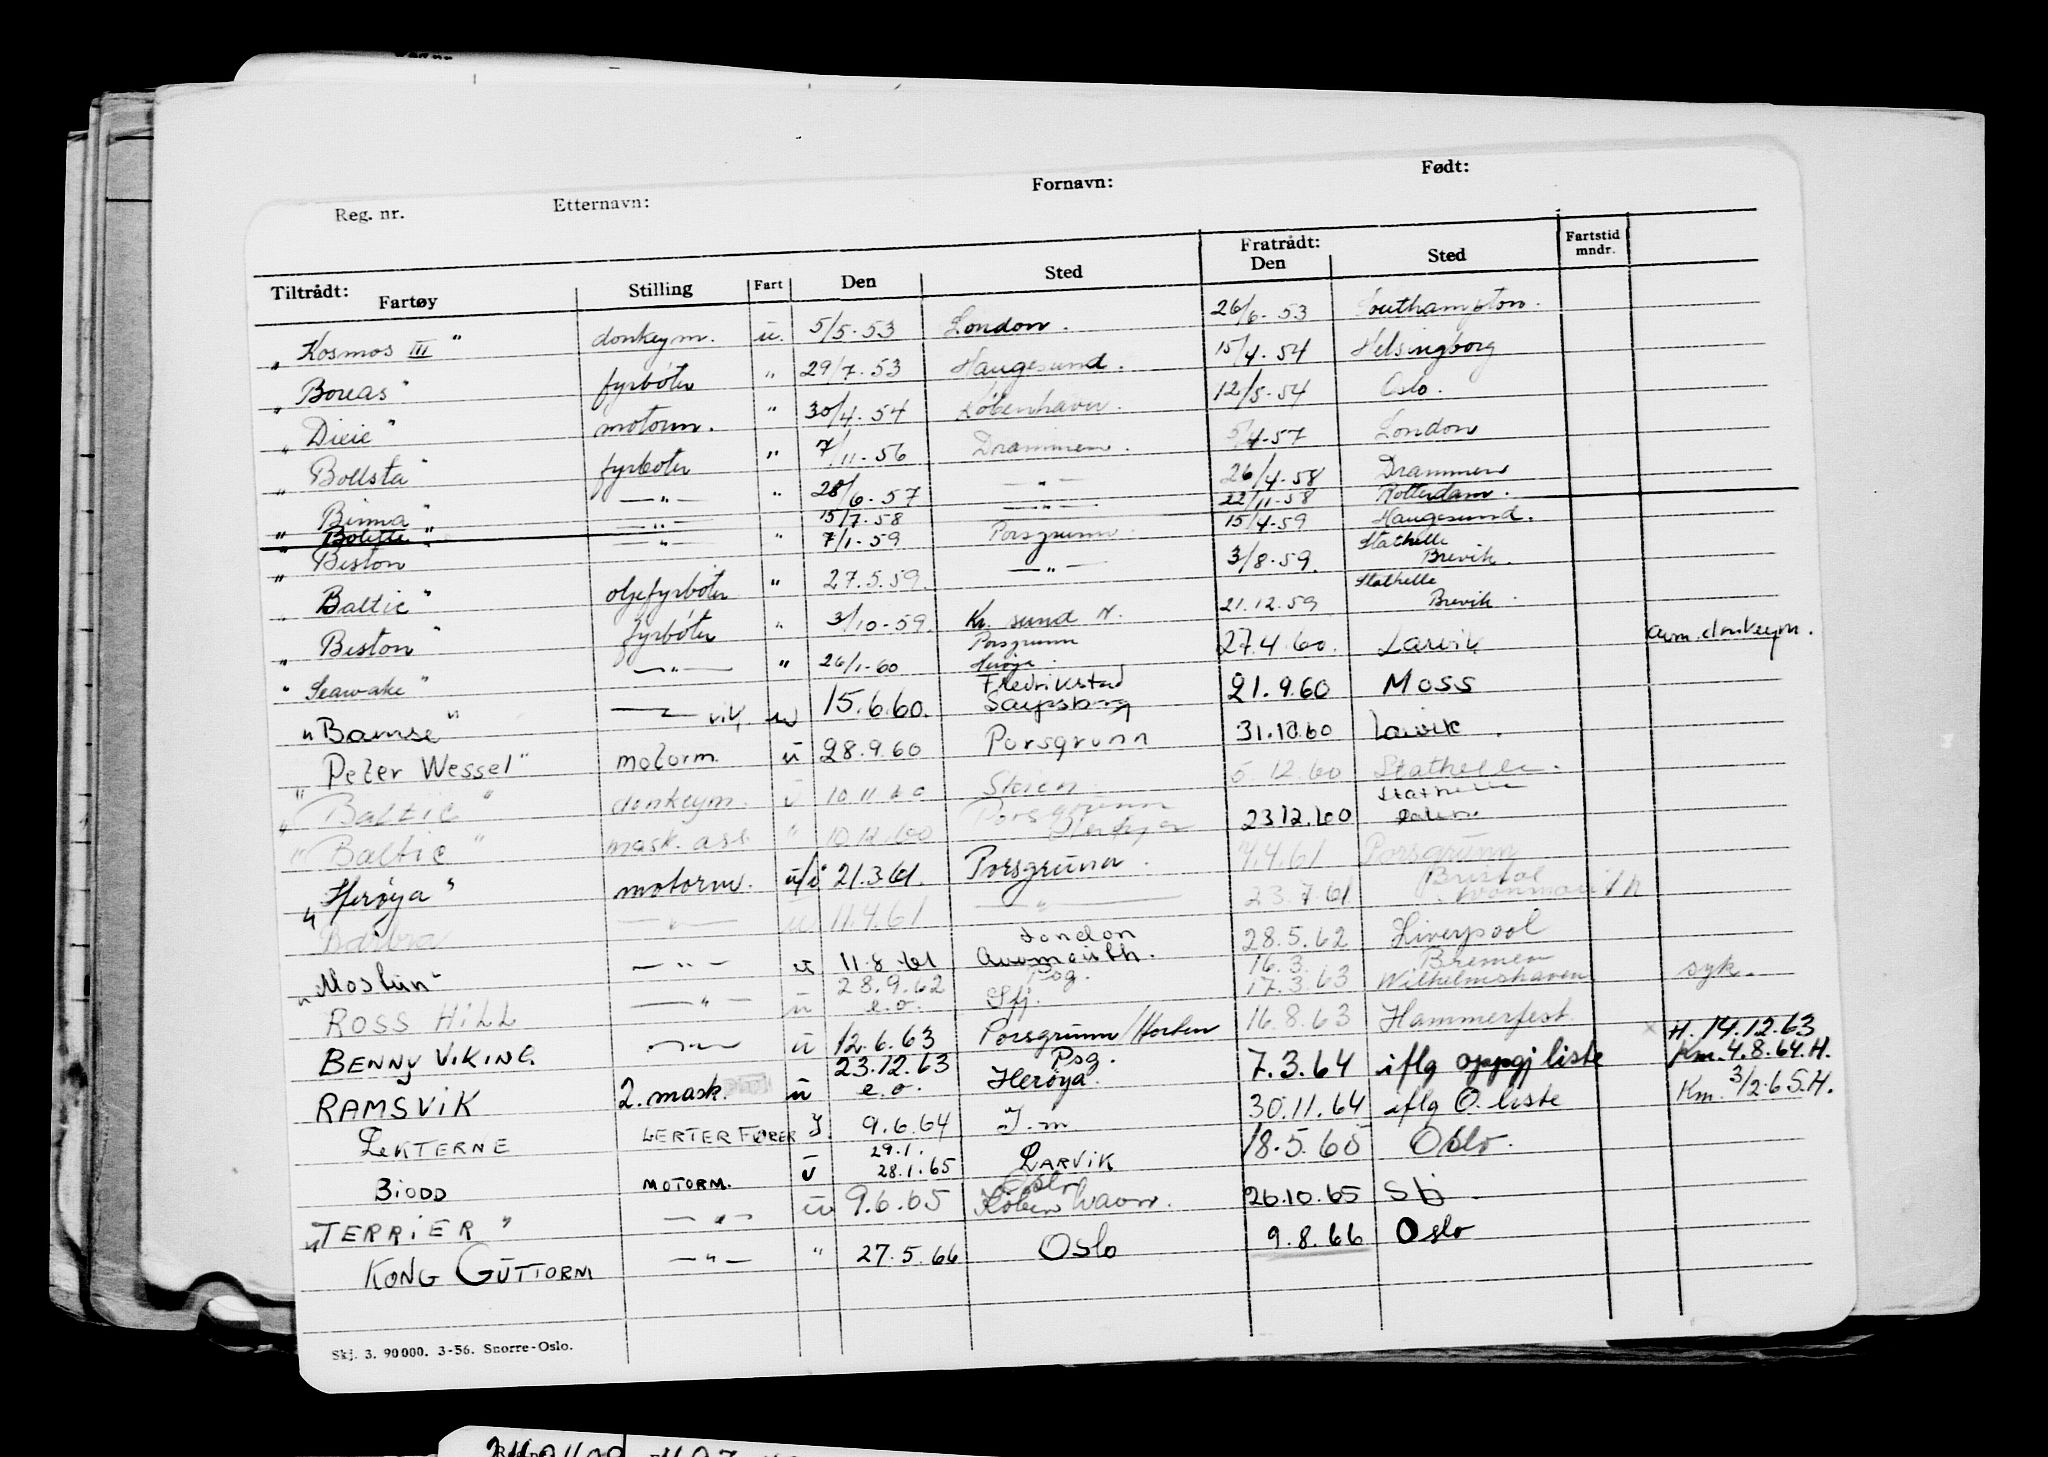 Reg. nr. Etternavn: Fornavn: Født:
Tiltrådt: Fratrådt:
Fartøy Stilling Fart Den Sted Den Sted Fartstid mndr.
„ Kosmos III " donkeym. u. 5/5-53 London. 26/6-53 Southampton.
„ Boreas " fyrbøter " 29/7-53 Haugesund. 15/4-54 Helsingborg
„ Dixie " motorm. " 30/4-54 København. 12/5-54 Oslo.
„ Bollsta " fyrbøter " 7/11-56 Drammen. 5/4-57 London
„ Binna " —"— " 28/6-57 —"— 26/4-58 Drammen
„ Bolette " —"— 15/7-58 —"— 22/11-58 Rotterdam.
„ Beston —"— " 7/1-59 Porsgrunn. 15/4-59 Haugesund.
„ Baltic " oljefyrbøter " 27.5.59. —"— 3/8-59. Stathelle Brevik.
„ Beston " fyrbøter " 3/10-59. Kr. sund N. 21.12.59 Stathelle Brevik.
" Seawake " —"— " 26/1-60 Porsgrunn Herøya. 27.4.60. Larvik avm. donkeym.
„ Bamse " —"— vik. u 15.6.60. Fredrikstad Sarpsborg 21.9.60 Moss
„ Peter Wessel " motorm. u 28.9.60 Porsgrunn 31.10.60 Larvik.
„ Baltic " donkeym. u 10.11.60 Skien 5.12.60 Stathelle.
" Baltic " mask. ass. " 10.12.60 Porsgrunn 23.12.60 Stathelle
„ Herøya " motorm. u/i 21.3.61. Porsgrunn. 7.4.61 Porsgrunn
Barbra —"— u 11.4.61 —"— 23.7.61 Bristol Avonmouth
„ Mostun " —"— u 11.8.61 London Avonmouth. 28.5.62 Liverpool
ROSS HILL —"— u 28.9.62 e.o. Psg. Sfj. 16.3. 17.3.63 Bremen Wilhelmshaven syk.
BENNY VIKING —"— u 12.6.63 Porsgrunn/Horten 16.8.63 Hammerfest.
RAMSVIK 2. mask. u 23.12.63 e.o. Psg. Herøya. 7.3.64 iflg oppgj liste H. 14.12.63 Km. 4.8.64.H.
LEKTERNE LEKTERFØRER I. 9.6.64 I.m 30.11.64 iflg O. liste Km. 3/2.65.H.
BIODD MOTORM. u 29.1. 28.1.65 LARVIK Oslo 18.5.65 Oslo.
„ TERRIER " —"— u 9.6.65 København. 26.10.65 Sbj
KONG GUTTORM —"— " 27.5.66 Oslo 9.8.66 Oslo
Skj. 3. 90000. 3-56. Snorre-Oslo.